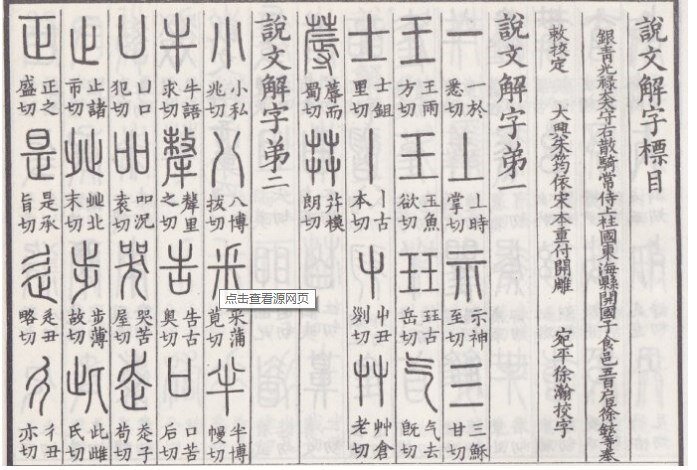 說文解字標目
銀青光祿大夫守右散騎常侍上柱國東海縣開國子食邑五百户臣徐鉉等奉
敕校定 大興朱筠依宋本重付開雕 宛平徐瀚校字
說文解字弟一
一 一於悉切 丄 丄時掌切 示 示神至切 三 三穌甘切
王 王雨方切 玉 玉魚欲切 玨 玨古岳切 气 气去旣切
士 士鉏里切 丨 丨古本切 屮 屮丑切 艸 艸倉老切
蓐 蓐而蜀切 茻 茻模朗切
說文解字弟二
小 小私兆切 八 八博拔切 釆 釆蒲莧切 半 半博幔切
牛 牛語求切 犛 犛里之切 告 告古奧切 口 口苦后切
凵 凵口犯切 吅 吅況袁切 哭 哭苦屋切 走 走子苟切
止 止諸市切 癶 癶北末切 步 步薄故切 此 此雌氏切
正 正之盛切 是 是承旨切 辵 辵丑略切 彳 彳丑亦切
点击查看源网页